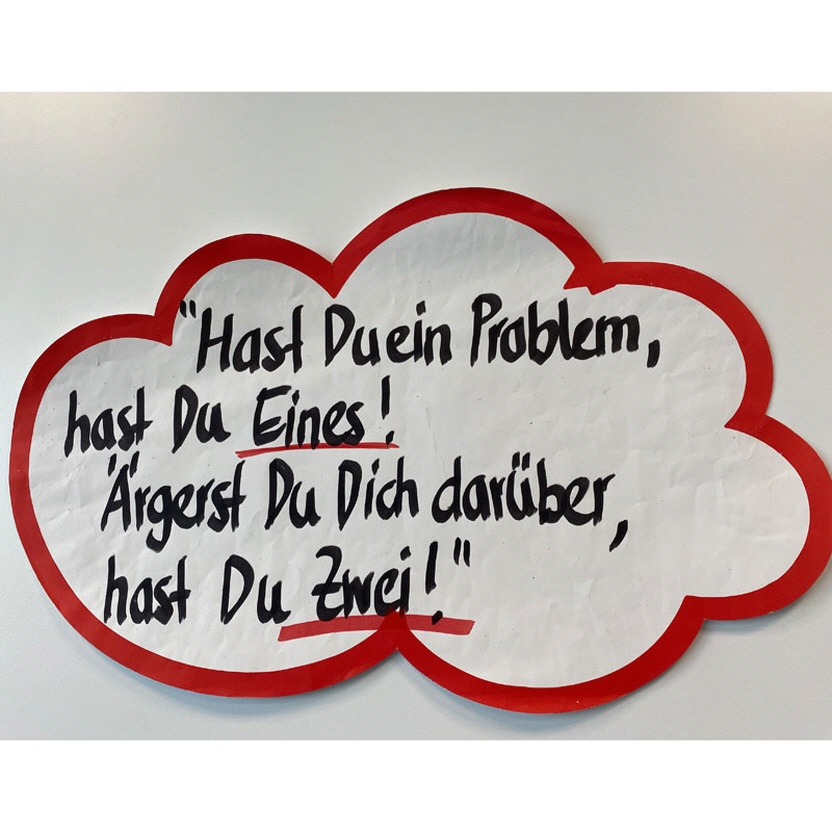 "Hast Du ein Problem,
hast Du Eines!
Ärgerst Du Dich darüber,
hast Du Zwei!"